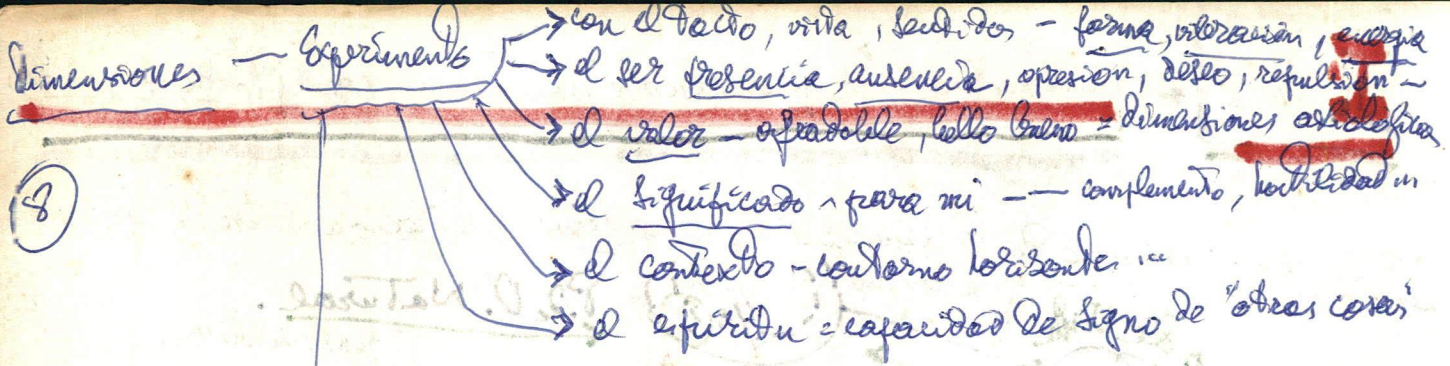 con el tacto, vista, sentidos - forma, vibración, energía
Dimensiones — Experimento
el ser presencia, ausencia, opresión, deseo, repulsión -
el valor - agradable, bello bueno = dimensiones axiológicas
el significado - para mi - — complemento, hostilidad
8
el contexto - contorno horizonte ...
el espíritu = capacidad de signo de "otras cosas"
D. Natural.